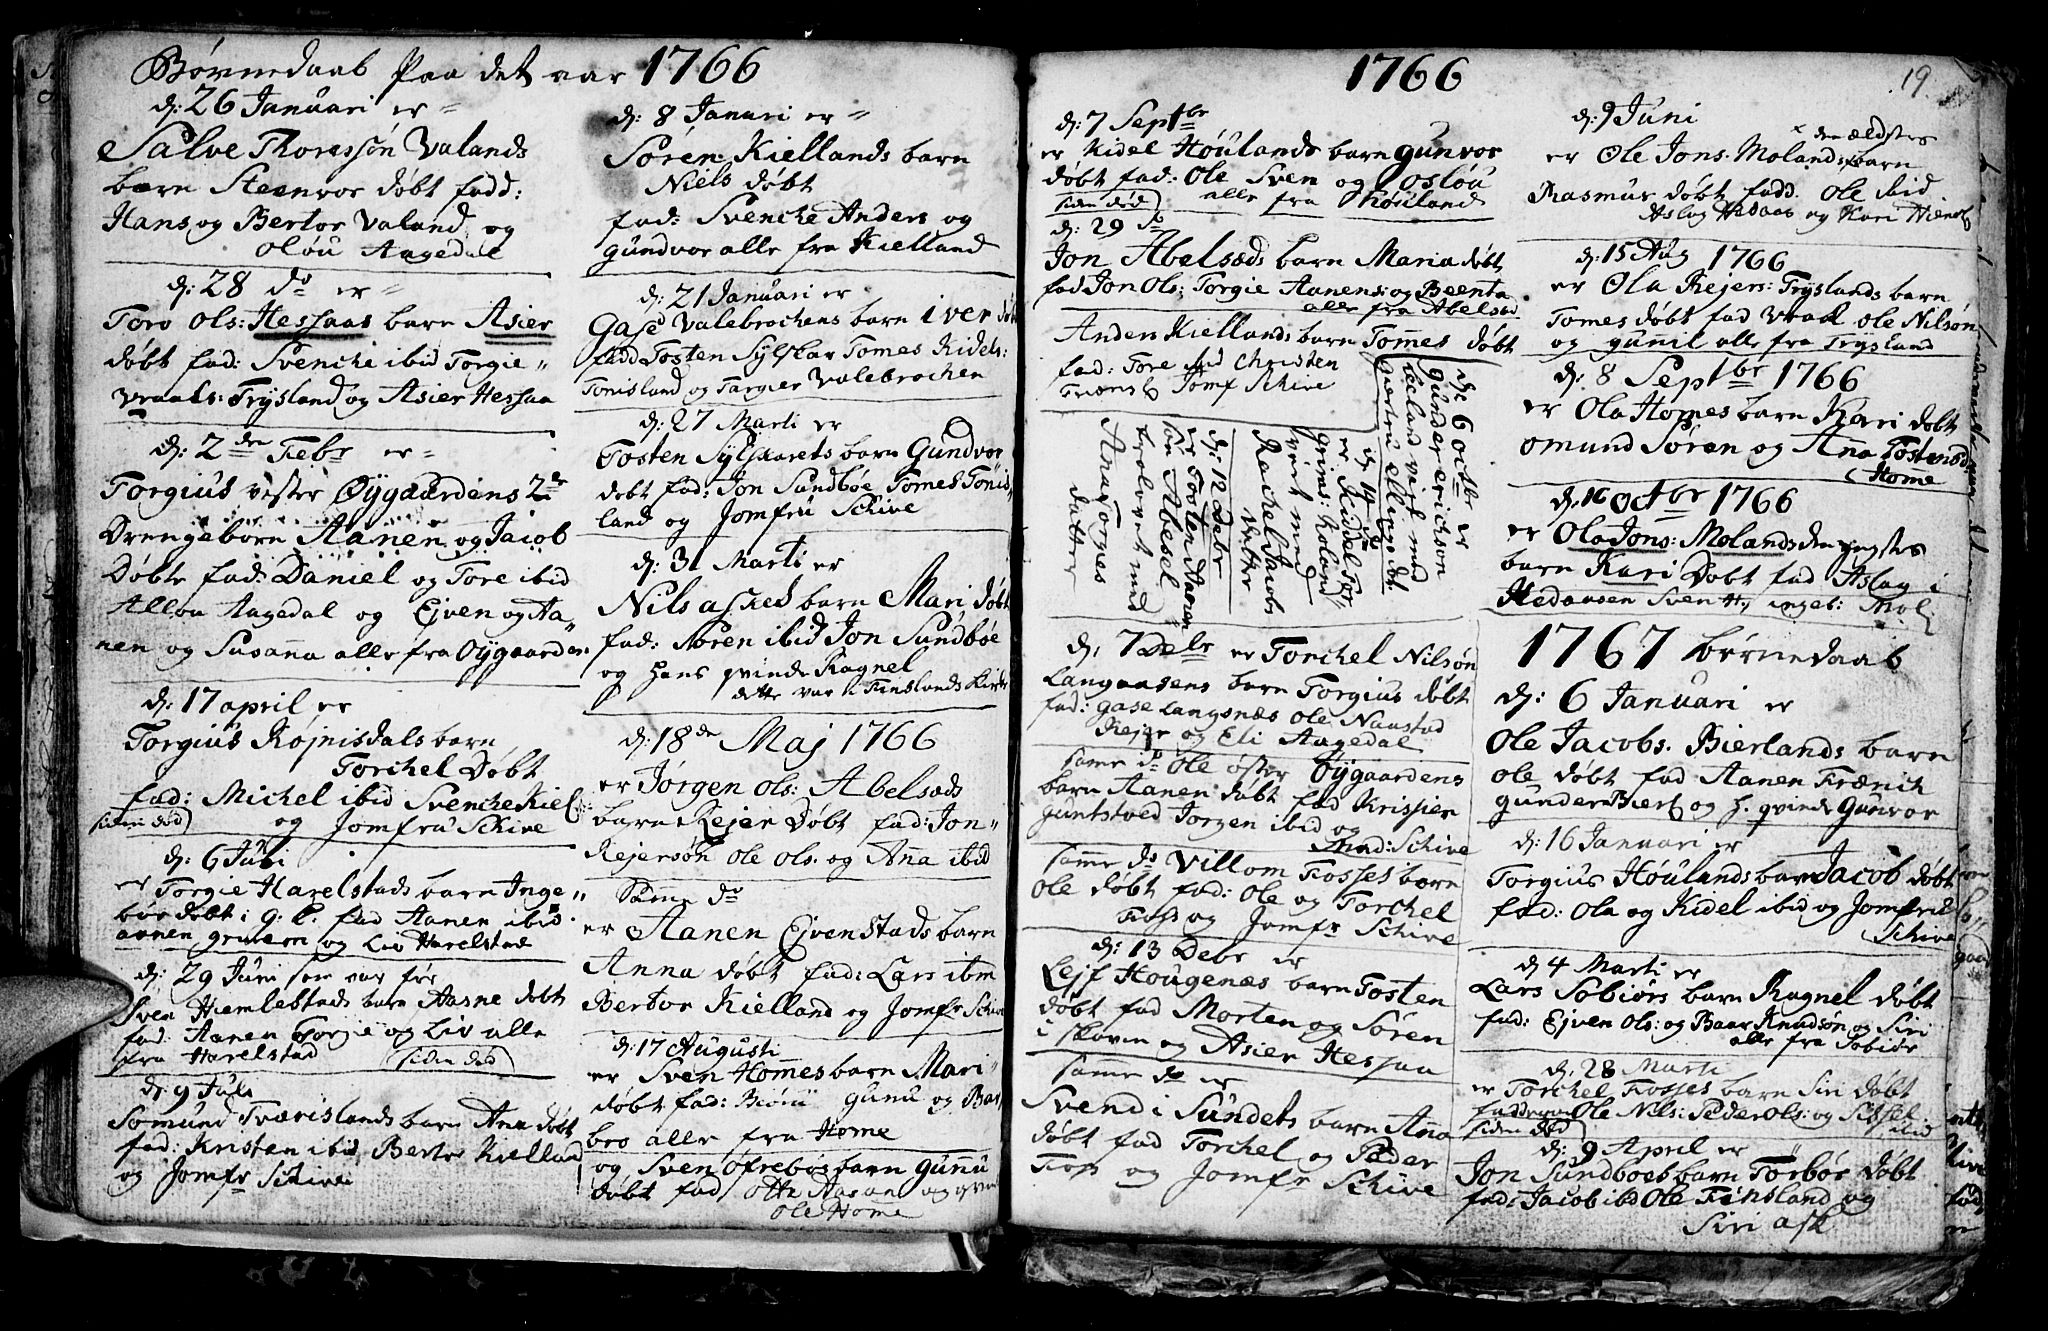 Børnedaab Paa det aar 1766
d: 26 Januari er
Salve Thoressøn Valands
barn Steenvor døbt fadd:
Hans og Bertor Valand og
Oløu Aagedal
d: 28 do er
Toro Ols: Hessaas barn Asier
døbt fad: Svenche ibid Torgie
Vraals: Trysland og Asier Hessaa
d: 2de Febr er
Torgius vester Øygaardens 2de
Drengebørn Aanen og Jacob
Døbte fad: Daniel og Tore ibid
Allou Aagedal og Ejven og Aa
nen og Susanna alle fra Øygaarden
d: 17 april er
Torgius Røjnisdals barn
Torchel Døbt
fad: Michel ibid Svenche Kiel
siden død og Jomfru Schive
d: 6 Juni
er Torgie Harelstads barn Inge
bør døbt i g. k. fad Aanen ibid
aanen og Liv Harelstad
d: 29 Juni som var før
Sven Hiemlestads barn Aasne døbt
fad: Aanen Torgie og Liv alle
fra Harelstad siden død
d: 9 Juli
Somund Tværislands barn Ana døbt
fad: Kristen ibid Bertor Kielland
og Jomfr Schive
d: 8 Januari er
Søren Kiellands barn
Niels døbt
fad: Svenche Anders og
gundvor alle fra Kielland
d: 21 Januari er
Gase Valebrochens barn iver døbt
fadd Tosten Sylskar Tomes Kidels:
Tonisland og Targier Valebrochen
d: 27 Marti er
Tosten Sylskarets barn Gundvor
døbt fad: Jon Sundbøe Tomes Tonis
land og Jomfru Schive
d: 31 Marti er
Nils asked barn Mari døbt
fad: Søren ibid Jon Sundbøe
og hans qvinde Ragnel
dette var i Finslands Kirke
d: 18de Maj 1766
er Jørgen ols: Abelsæds
barn Rejer Døbt fad: Jon
Rejersøn ole ols. og Anna ibid
Samme do
er Aanen Ejvenstads barn
Anna døbt fad: Lars ibm
Bertor Kielland og Jomfr Schive
d: 17 Augusti
er Sven Homes barn Mari
døbt fad: Biørn Gunu og Bar
bro alle fra Home
og Sven Øfrebøs barn Gunnu
døbt fad Otte Aasan og qvin
Ole Home
1766
19
d: 7 Septbr
er Kidel Høulands barn Gunvor
døbt fad: Ole Sven og Osløu
siden død alle fra Høuland
d: 29 do
Jon Abelsæds barn Maria døbt
fad Jon Ols: Torgie Aanens: og Beenta
alle fra Abelsæd
Anders Kiellands barn Tomes døbt
fad: Tore ibid Christen
Jomf Schive
d: 6 octbr er
gunder erichsøn
viet med
giertru
d: 14 do
er Kidel Tor
grims: Roland
viet med
Rachel Jacobs
datter
d: 12 Debr
er Tosten Aanen
søn Abesel
trolovet med
Ana Torges
datter
d: 7 Debr er Torchel Nilsøn
Langaasens barn Torgius døbt
fad: gase Langsnæs ole Naastad
Rejer og Eli Aagedal
samme do ole øster Øygaardens
barn Aanen døbt fad Krissien
guntstved Jorgen ibid og
Mad: Schive
samme do Villom Fosses barn
Ole døbt fad: Ole og Torchel
Foss og Jomfr Schive
d: 13 Debr er
Lejf Hougenæs barn Tosten
døbt fad Morten og Søren
i skoven og Asier Hessaa
samme do er
Svend i Sundets barn Anna
døbt fad Torchel og Peder
Foss og Jomfr Schive
d: 9 Juni
er Ole Jons. Molands x den ældstes barn
Rasmus døbt fadd. Ole ibid
Aslag Hedaas og Kari
d: 15 Aug 1766
er Ola Rejers: Tryslands barn
Tomes døbt fad Vraal ole Nilsøn
og gunil alle fra Trysland
d: 8 Septbr 1766
er Ola Homes barn Kari døbt
omund Søren og Anna Tostensd
Home
d: 10 Octbr 1766
er Ola Jons: Molands den yngstes
barn Kari Døbt fad Aslag i
Hedaasen Sven H: ingeb: Mol
1767 børnedaab
d: 6 Januari er
Ole Jacobs. Bierlands barn
ole døbt fad Aanen Frænich
gunder Bierl og h. qvinde Gunvor
d: 16 Januari er
Torgius Høulands barn Jacob døbt
fad: Ola og Kidel ibid og Jomfru
Schive
d 4 Marti er
Lars Sobiørs barn Ragnel døbt
fad: Ejven ols: og Baar Knudsøn og Siri
alle fra Sobiør
d: 28 Marti
er Torchel Fosses barn Siri døbt
faddere Ole Nils: Peder ols: og Sissel
siden død ibid
d: 9 April er
Jon Sundboes barn Torbør døbt
fad: Jacob ibd Ole Finsland og
Siri ask